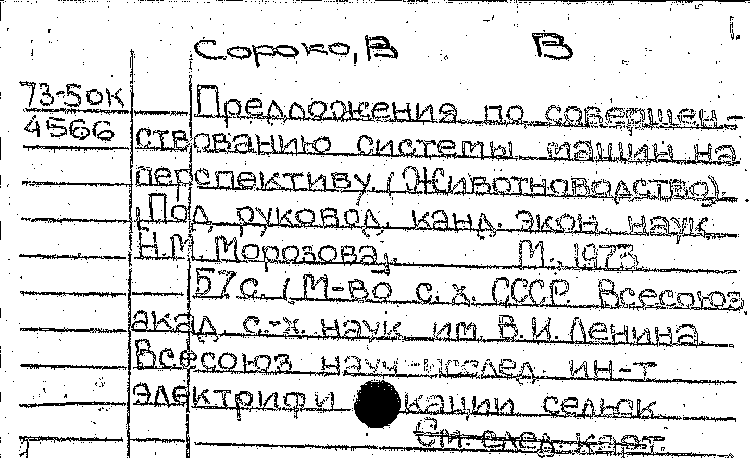 1.
Сороко, В В
73-50к
4566
Предложения по совершен-
ствованию системы машин на
перспективу. (Животноводство).
[Под руковод. канд. экон. наук
Н.М. Морозова]. М., 1973.
57с. (М-во с. х. СССР. Всесоюз.
акад. с.-х. наук им. В.И. Ленина
Всесоюз науч-исслед. ин-т
электрифи кации сельск
См. след. карт.